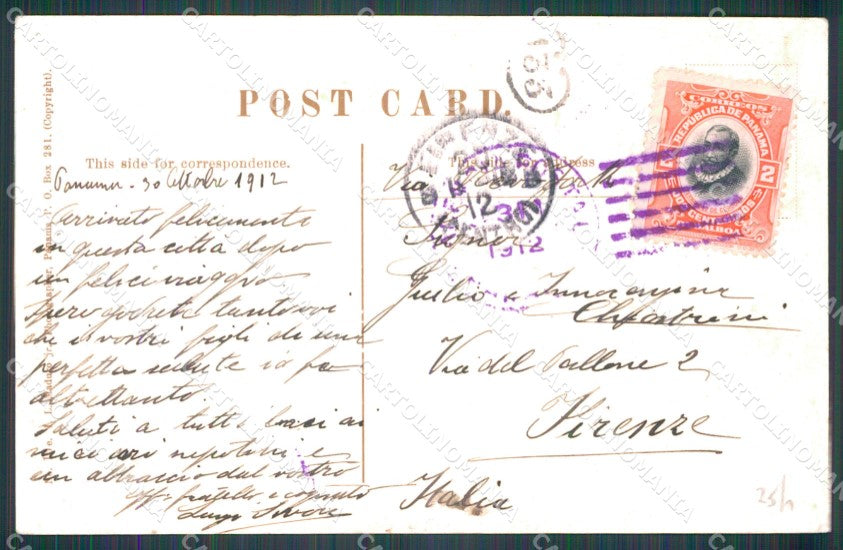 POST CARD.
This side for correspondence.
This side for address
Panama - 30 Ottobre 1912
Arrivato felicemente
in questa città dopo
un felice viaggio
spero godrete tanto voi
che i vostri figli di una
perfetta salute io fo
altrettanto.
Saluti a tutti baci ai
miei cari nepotini e
un abbraccio dal vostro
aff. fratello e cognato
Luigi
Via New York
Signori
Giulio e
Via del Pallone 2
Firenze
Italia
CORREOS
REPUBLICA DE PANAMA
2
2
BALBOA
FIRENZE
12
30
1912
P. O. Box 281. (Copyright).
25/-
CARTOLINOMANIA